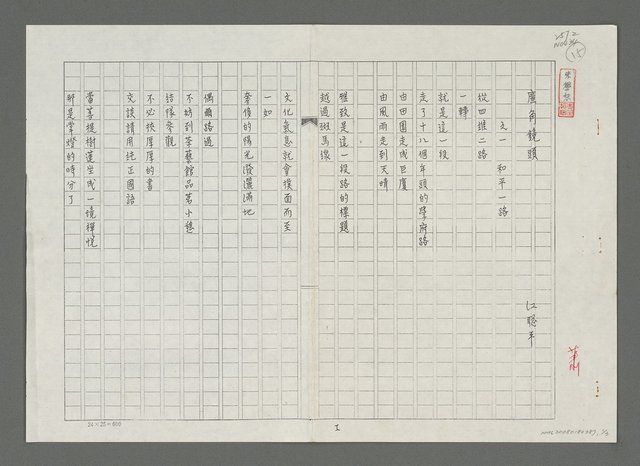 廣角鏡頭
之一 和平一路
江聰平
從四維二路
一轉
就是這一段
走了十八個年頭的學府路
由田園走成巨廈
由風雨走到天晴
雅致是這一段路的標題
越過斑馬線
文化氣息就會撲面而至
一如
奢侈的陽光潑灑滿地
偶爾路過
不妨到茶藝館品茗小憩
結隊參觀
不必挾厚厚的書
交談請用純正國語
當菩提樹蓮坐成一境禪悅
那是掌燈的時分了
24×25=600
1